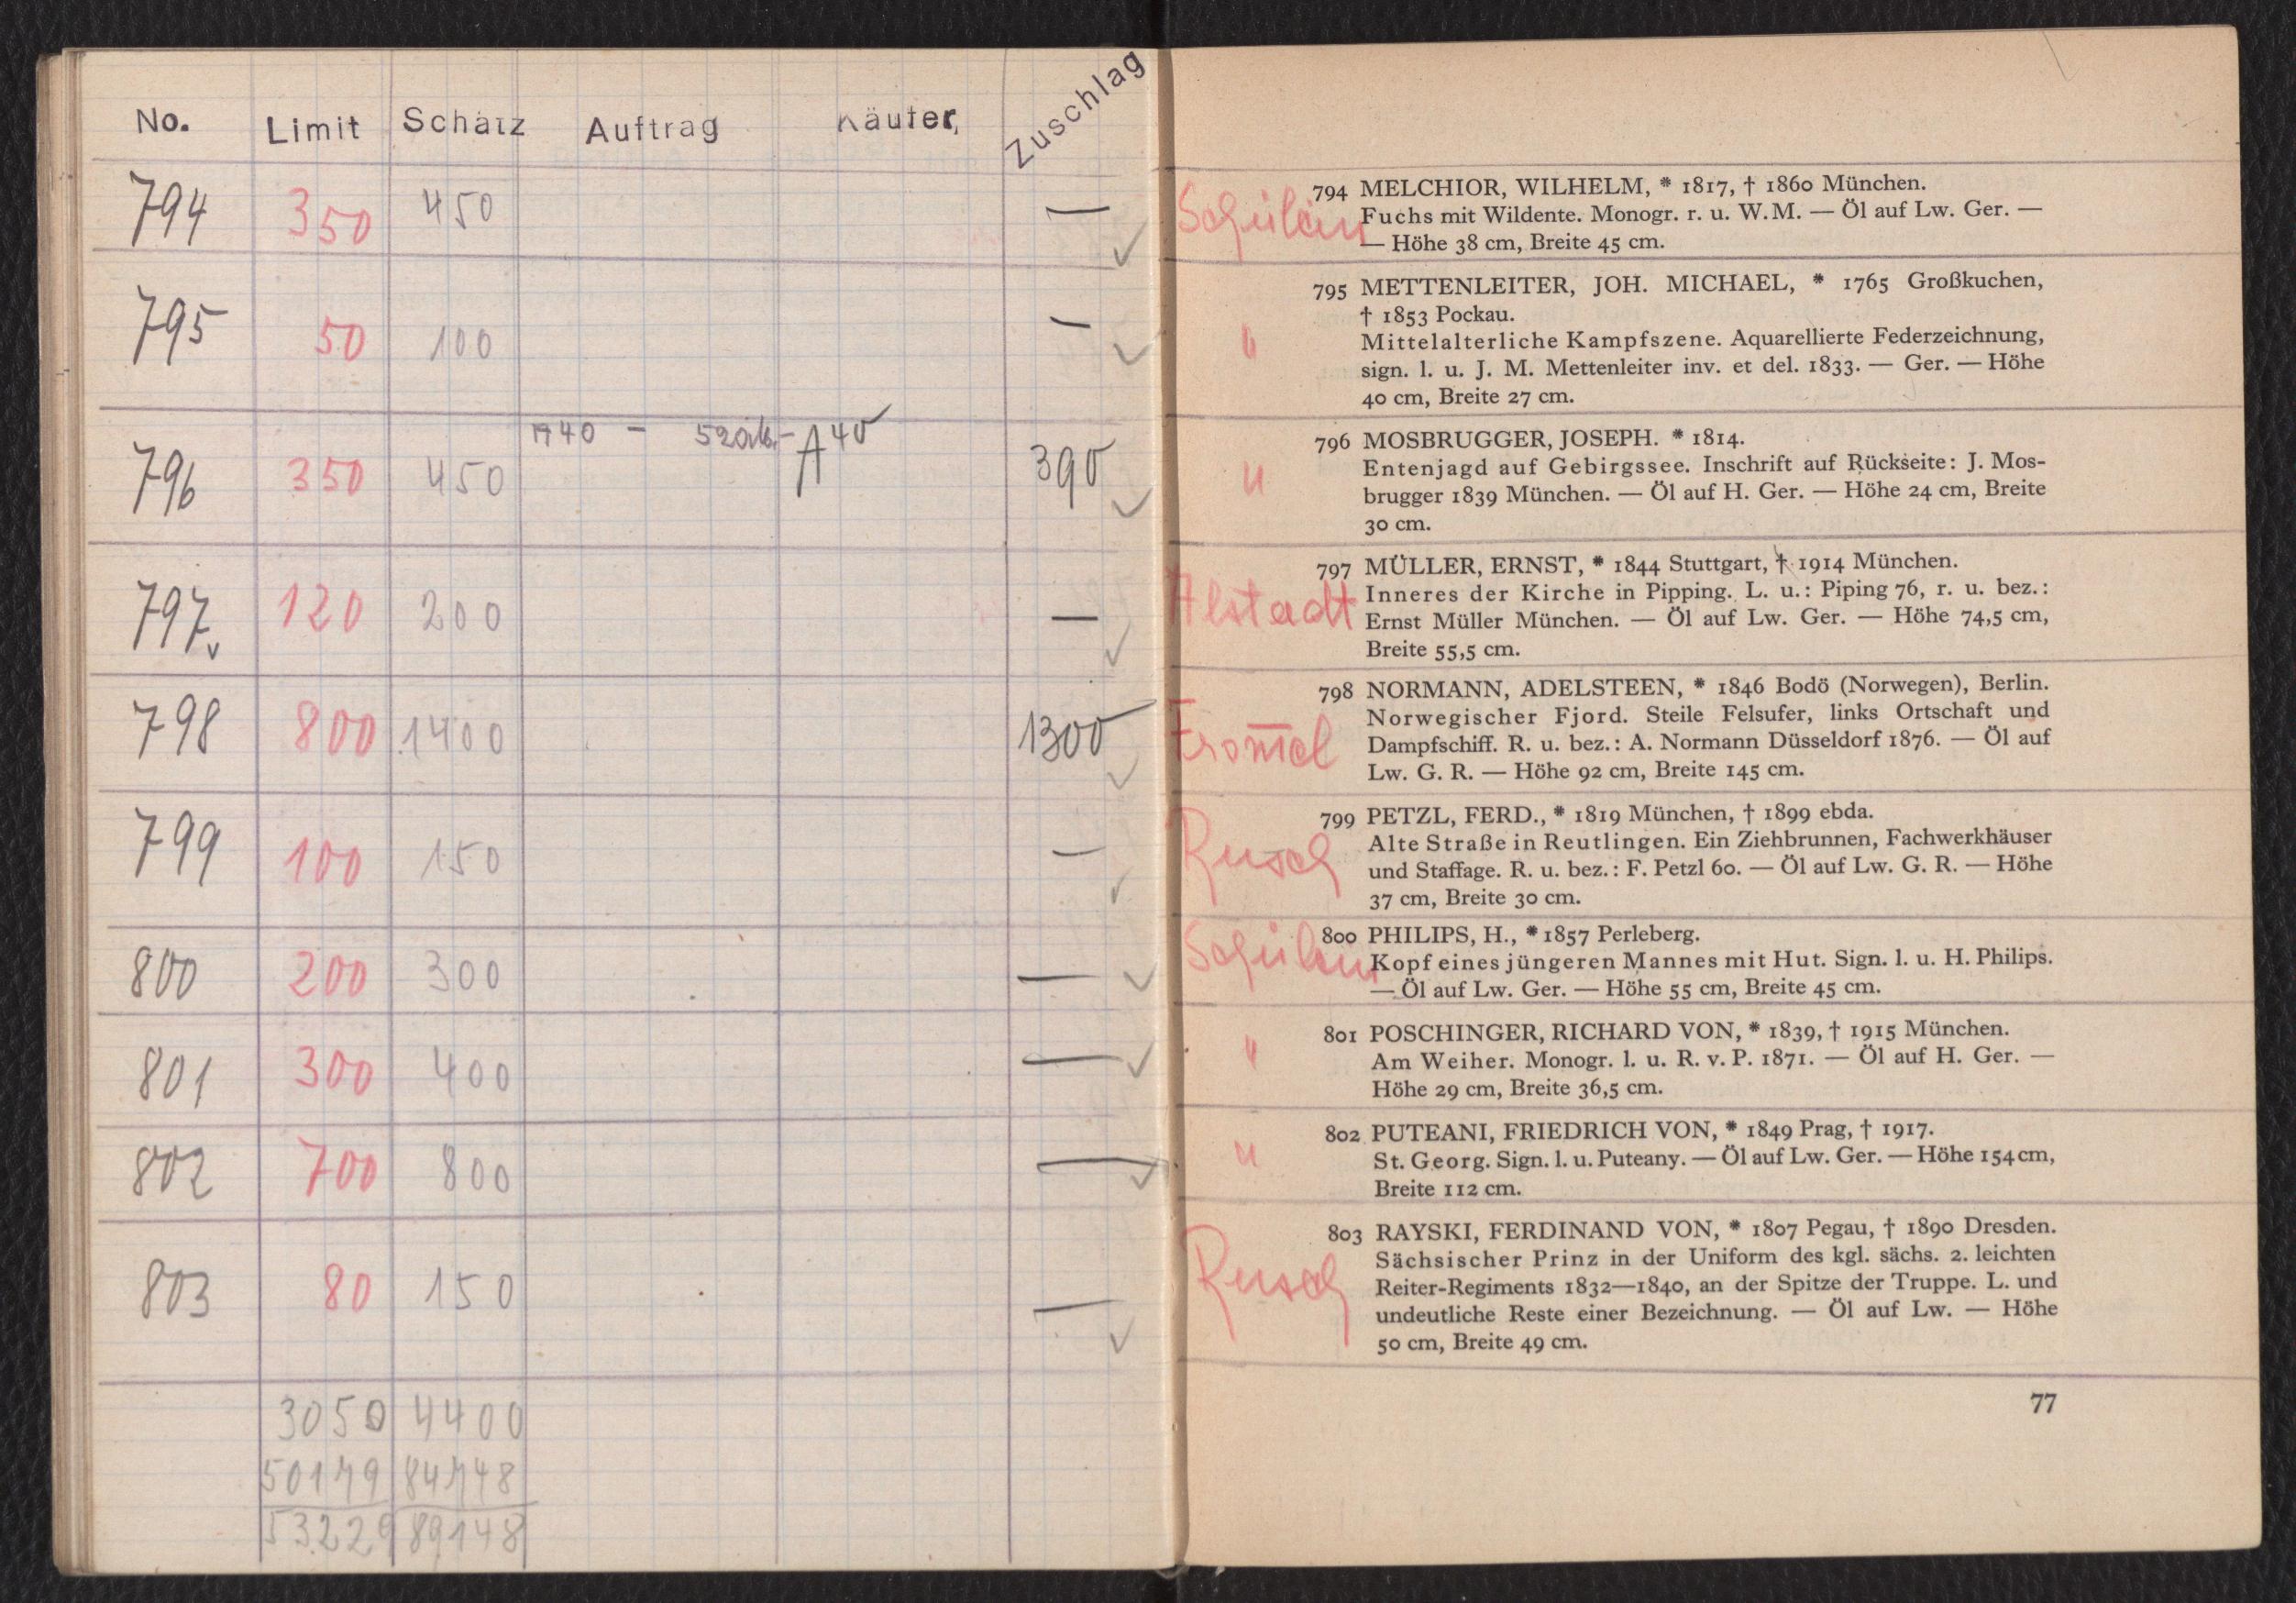 No. Limit Schätz Auftrag Käufer, Zuschlag
794 350 450 —
795 50 100 —
1940 - A 40
796 350 450 390
797 120 200 —
798 800 1400 1300
799 100 150 —
800 200 300 —
801 300 400 —
802 700 800 —
803 80 150 —
3050 4400
50179 84748
53229 89148
794 MELCHIOR, WILHELM, * 1817, † 1860 München.
Fuchs mit Wildente. Monogr. r. u. W. M. — Öl auf Lw. Ger. —
— Höhe 38 cm, Breite 45 cm.
795 METTENLEITER, JOH. MICHAEL, * 1765 Großkuchen,
† 1853 Pockau.
"
Mittelalterliche Kampfszene. Aquarellierte Federzeichnung,
sign. l. u. J. M. Mettenleiter inv. et del. 1833. — Ger. — Höhe
40 cm, Breite 27 cm.
796 MOSBRUGGER, JOSEPH. * 1814.
"
Entenjagd auf Gebirgssee. Inschrift auf Rückseite: J. Mos-
brugger 1839 München. — Öl auf H. Ger. — Höhe 24 cm, Breite
30 cm.
797 MÜLLER, ERNST, * 1844 Stuttgart, † 1914 München.
Alstadt
Inneres der Kirche in Pipping. L. u.: Piping 76, r. u. bez.:
Ernst Müller München. — Öl auf Lw. Ger. — Höhe 74,5 cm,
Breite 55,5 cm.
798 NORMANN, ADELSTEEN, * 1846 Bodö (Norwegen), Berlin.
Norwegischer Fjord. Steile Felsufer, links Ortschaft und
Dampfschiff. R. u. bez.: A. Normann Düsseldorf 1876. — Öl auf
Lw. G. R. — Höhe 92 cm, Breite 145 cm.
799 PETZL, FERD., * 1819 München, † 1899 ebda.
Rusch
Alte Straße in Reutlingen. Ein Ziehbrunnen, Fachwerkhäuser
und Staffage. R. u. bez.: F. Petzl 60. — Öl auf Lw. G. R. — Höhe
37 cm, Breite 30 cm.
800 PHILIPS, H., * 1857 Perleberg.
Kopf eines jüngeren Mannes mit Hut. Sign. l. u. H. Philips.
— Öl auf Lw. Ger. — Höhe 55 cm, Breite 45 cm.
801 POSCHINGER, RICHARD VON, * 1839, † 1915 München.
"
Am Weiher. Monogr. l. u. R. v. P. 1871. — Öl auf H. Ger. —
Höhe 29 cm, Breite 36,5 cm.
802 PUTEANI, FRIEDRICH VON, * 1849 Prag, † 1917.
"
St. Georg. Sign. l. u. Puteany. — Öl auf Lw. Ger. — Höhe 154 cm,
Breite 112 cm.
803 RAYSKI, FERDINAND VON, * 1807 Pegau, † 1890 Dresden.
Rusch
Sächsischer Prinz in der Uniform des kgl. sächs. 2. leichten
Reiter-Regiments 1832—1840, an der Spitze der Truppe. L. und
undeutliche Reste einer Bezeichnung. — Öl auf Lw. — Höhe
50 cm, Breite 49 cm.
77